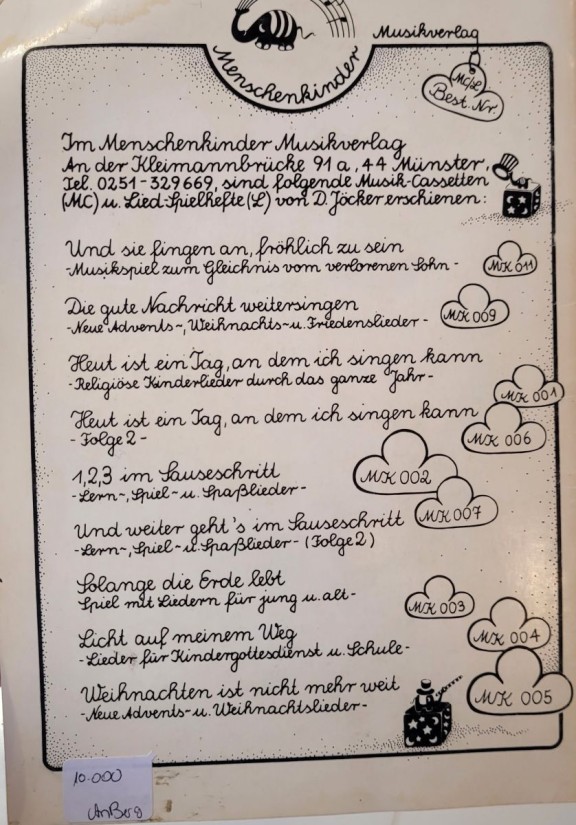 Menschenkinder
Musikverlag
MC/L
Best. Nr
Im Menschenkinder Musikverlag
An der Kleimannbrücke 91a, 44 Münster,
Tel. 0251-329669, sind folgende Musik-Cassetten
(MC) u. Lied-Spielhefte (L) von D. Jöcker erschienen:
Und sie fingen an, fröhlich zu sein
-Musikspiel zum Gleichnis vom verlorenen Sohn-
MK 011
Die gute Nachricht weitersingen
-Neue Advents-, Weihnachts- u. Friedenslieder-
MK 009
Heut ist ein Tag, an dem ich singen kann
-Religiöse Kinderlieder durch das ganze Jahr-
MK 001
Heut ist ein Tag, an dem ich singen kann
-Folge 2-
MK 006
1,2,3 im Sauseschritt
-Lern-, Spiel- u. Spaßlieder-
MK 002
Und weiter geht's im Sauseschritt
-Lern-, Spiel- u. Spaßlieder- (Folge 2)
MK 007
Solange die Erde lebt
Spiel mit Liedern für jung u. alt-
MK 003
Licht auf meinem Weg
-Lieder für Kindergottesdienst u. Schule-
MK 004
Weihnachten ist nicht mehr weit
-Neue Advents- u. Weihnachtslieder-
MK 005
10.000